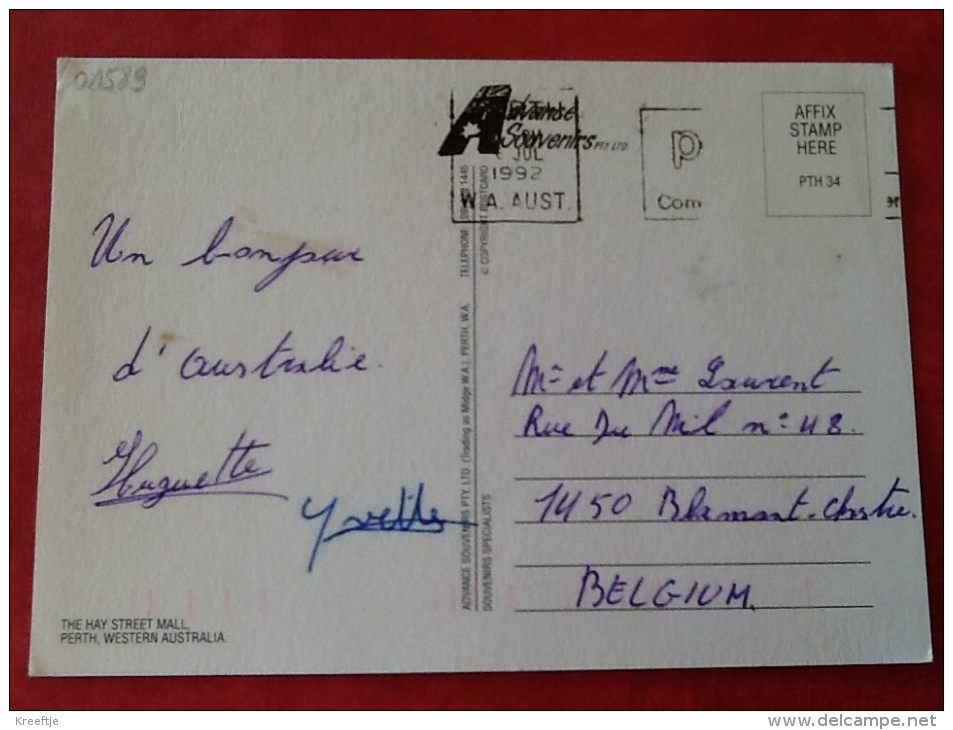 01589
Advance
Souvenirs PTY LTD
JUL
1992
W.A. AUST.
P
Com
AFFIX
STAMP
HERE
PTH 34
Un bonjour
d'australie.
Huguette
Yvette
TELEPHONE
© COPYRIGHT POSTCARD
ADVANCE SOUVENIRS PTY. LTD. (Trading as Midge W.A.), PERTH, W.A.
SOUVENIRS SPECIALISTS
Mr et Mme Laurent
Rue Du Mil n° 48.
1450 Blamont-Chstre.
BELGIUM.
THE HAY STREET MALL,
PERTH, WESTERN AUSTRALIA.
Kreeftje
www.delcampe.net